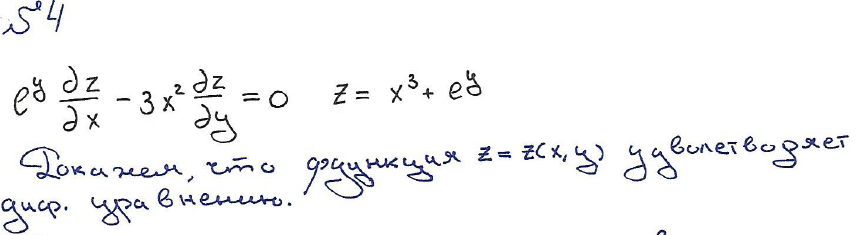 №4
e^y ∂z/∂x − 3x² ∂z/∂y = 0   z = x³ + e^y
Докажем, что функция z = z(x, y) удволетворяет
диф. уравнению.